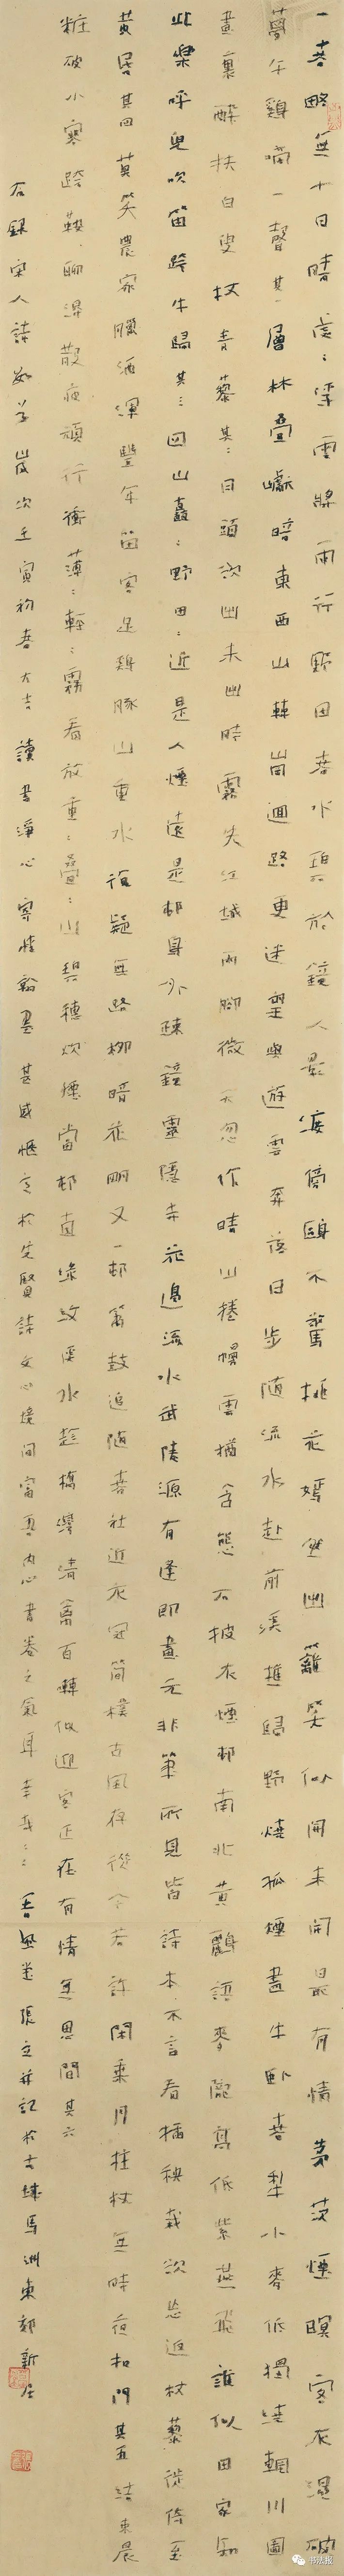 一春略無十日晴處〻浮雲將雨行野田春水碧於鏡人影渡傍鷗不驚桃花嫣然出籬笑似開未開最有情茅茨煙暝客衣濕破
夢午雞啼一聲其一層林疊巘暗東西山轉崗迴路更迷望與遊雲奔落日步隨流水赴前溪樵歸野燒孤煙盡牛臥春犁小麥低獨繞輞川圖
畫裏醉扶白叟杖青藜其二日頭欲出未出時霧失江城雨腳微天忽作晴山捲幔雲猶含態石披衣煙邨南北黃鸝語麥隴高低紫燕飛誰似田家知
此樂呼兒吹笛跨牛歸其三四山矗〻野田〻近是人煙遠是邨鳥外疎鐘靈隱寺花邊流水武陵源有逢即畫元非筆所見皆詩本不言看插秧栽欲忘返杖藜徙倚至
黃昏其四莫笑農家臘酒渾豐年留客足雞豚山重水複疑無路柳暗花明又一邨簫鼓追隨春社近衣冠簡樸古風存從今若許閑乘月拄杖無時夜扣門其五結束晨
粧破小寒跨鞍聊得散疲頑行衝薄〻輕〻霧看放重〻疊〻山碧穗炊煙當邨直綠紋溪水趁橋彎清禽百囀似迎客正在有情無思間其六
右錄宋人詩數首歲次壬寅初春大吉讀書淨心寄情翰墨甚感愜意於先賢詩文心境間富吾內心書卷之氣耳幸〻張立并記於古馬洲東郊新居
书法报